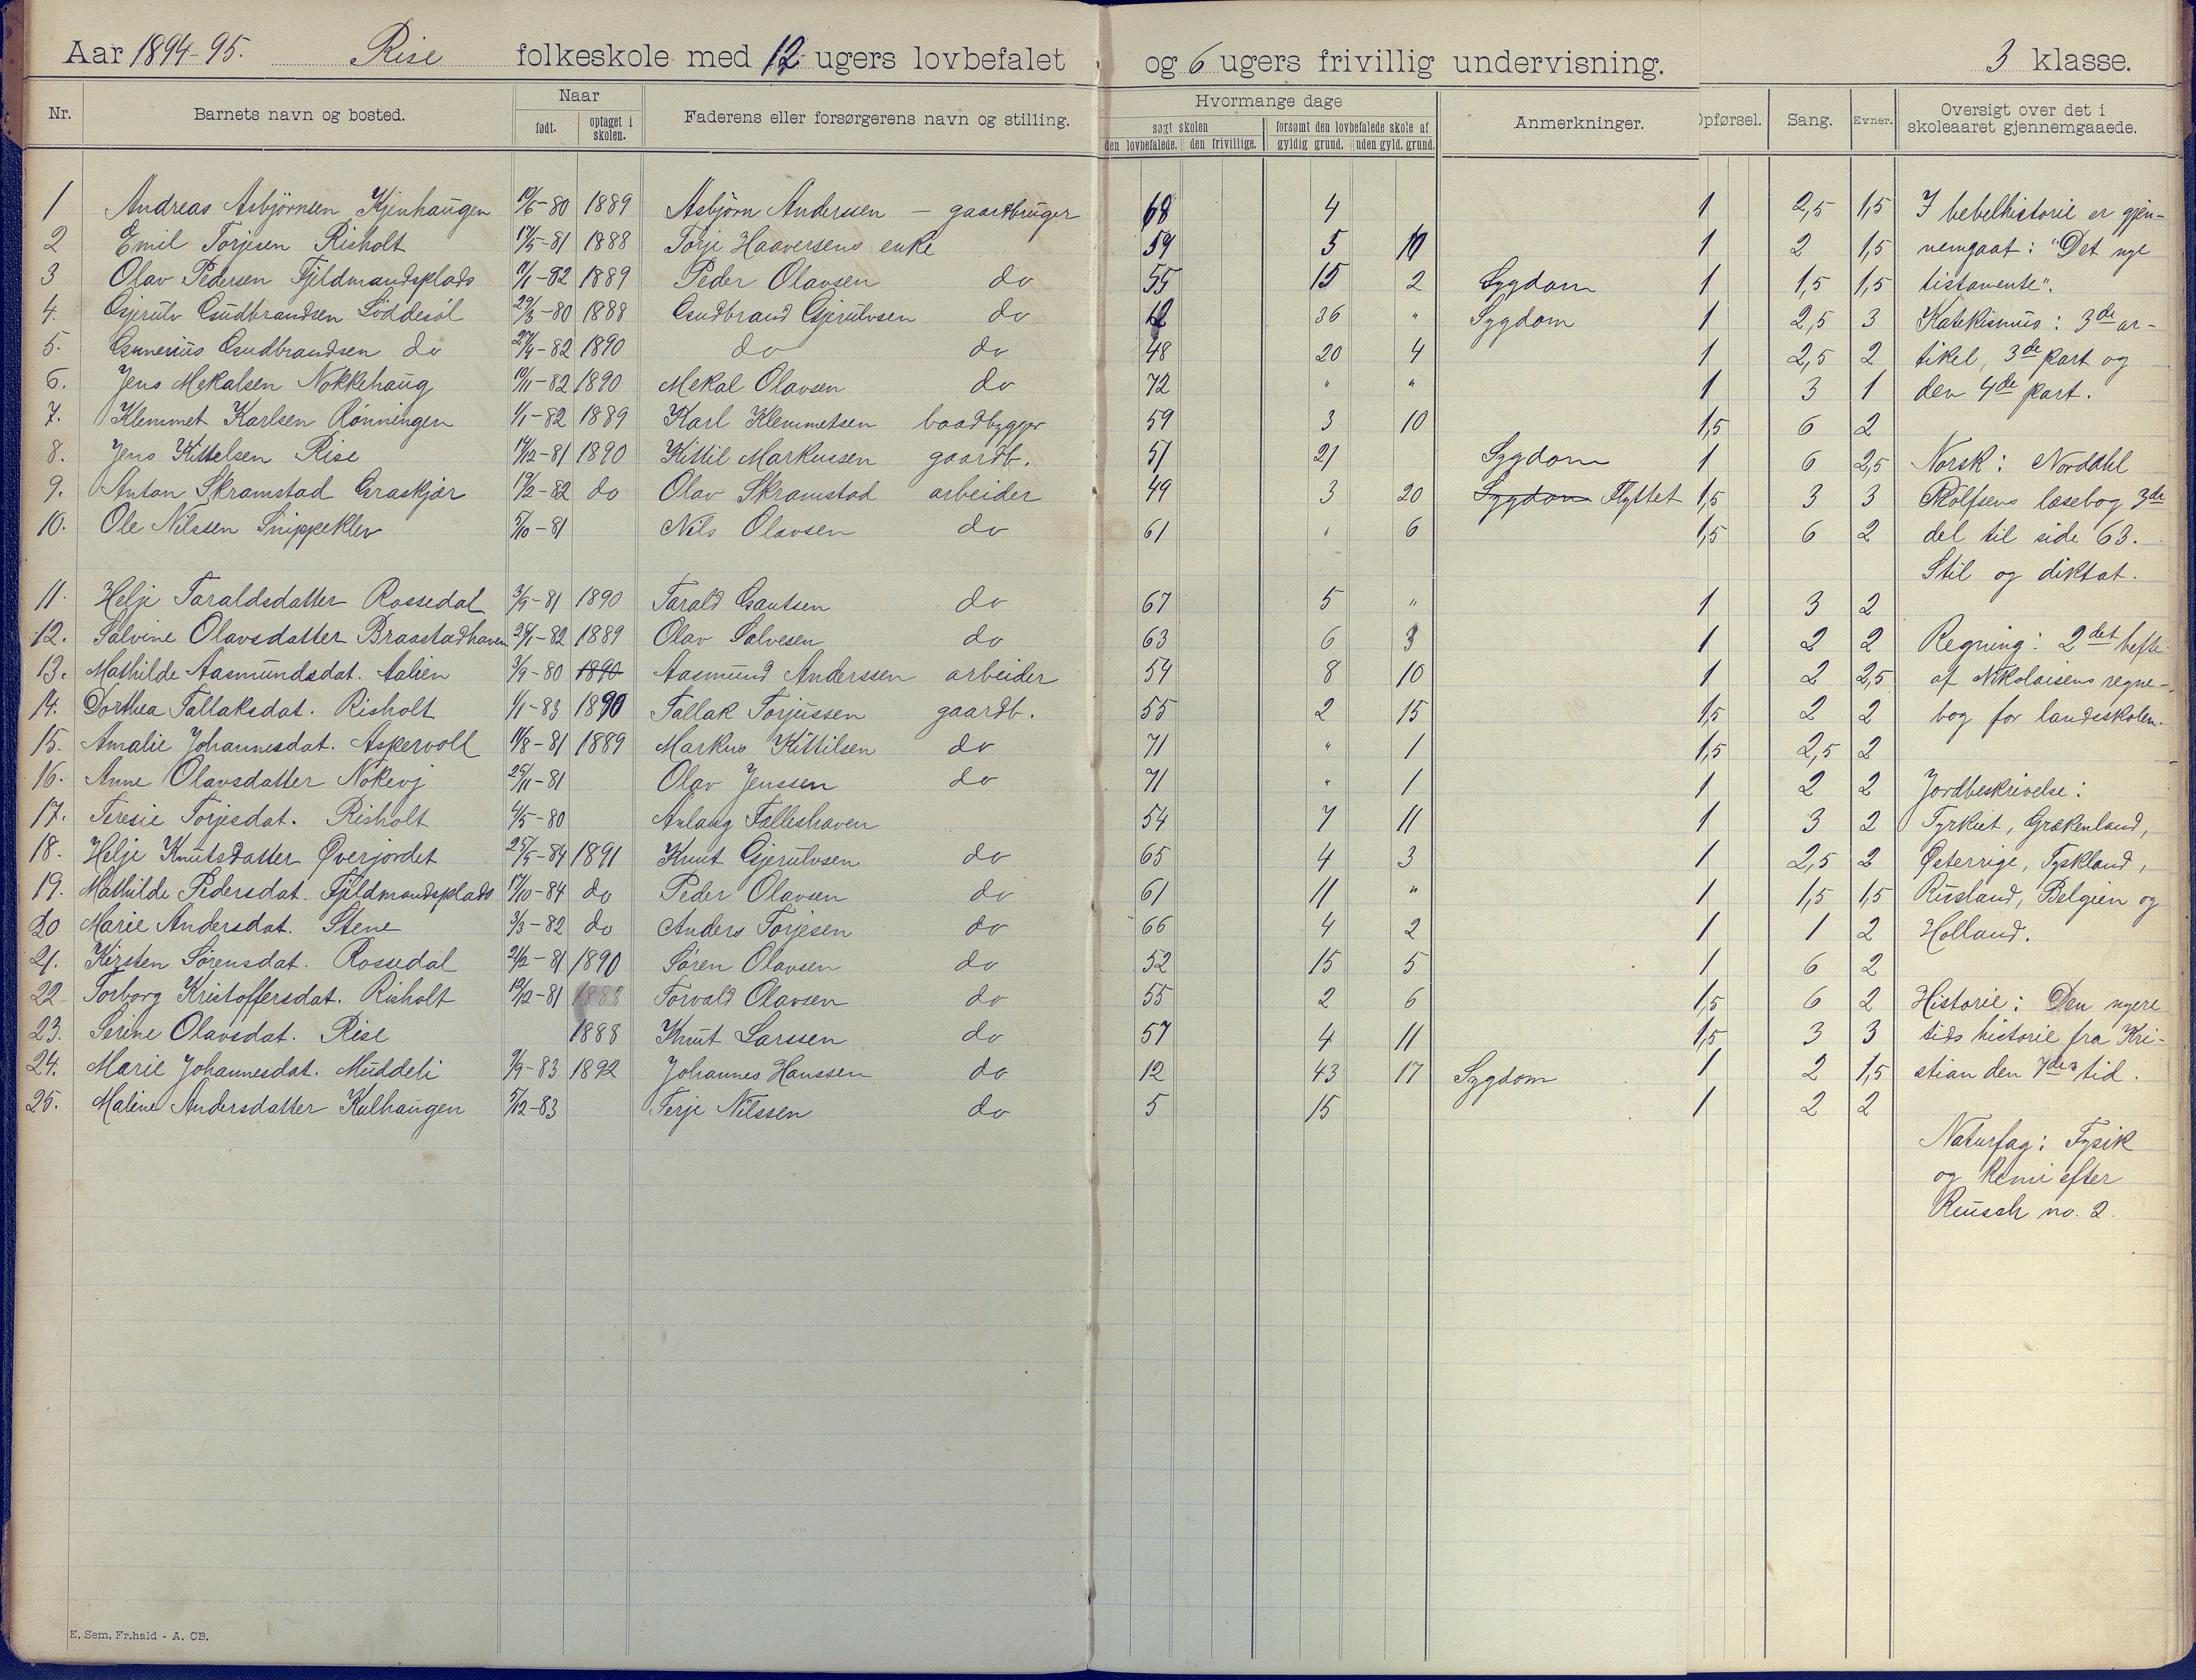 Aar 1894-95. Rise folkeskole med 12 ugers lovbefalet og 6 ugers frivillig undervisning. 3 klasse.
Nr. Barnets navn og bosted. Naar født. optaget i skolen. Faderens eller forsørgerens navn og stilling. Hvormange dage søgt skolen den lovbefalede. den frivillige. forsømt den lovbefalede skole af gyldig grund. uden gyld. grund. Anmerkninger. Opførsel. Sang. Evner. Oversigt over det i skoleaaret gjennemgaaede.
1 Andreas Asbjörnsen Kjenhaugen 10/6-80 1889 Asbjörn Anderssen - gaardbruger 68 4 1 2,5 1,5 I bebelhistorie er gjen-
2 Emil Torjesen Risholt 17/5-81 1888 Torje Haaversens enke 59 5 10 1 2 1,5 nemgaat: "Det nye
3 Olav Pedersen Fjeldmandsplads 11/1-82 1889 Peder Olavsen do 55 15 2 Sygdom 1 1,5 1,5 tistamente".
4. Gjerulv Gudbrandsen Löddesöl 29/3-80 1888 Gudbrand Gjerulvsen do 12 36 " Sygdom 1 2,5 3 Katekismus: 3de ar-
5. Gunerius Gudbrandsen do 27/4-82 1890 do do 48 20 4 1 2,5 2 tikel, 3de part og
6. Jens Mekalsen Nokkehaug 10/11-82 1890 Mekal Olavsen do 72 " " 1 3 1 den 4de part.
7. Klemmet Karlsen Rönningen 1/1-82 1889 Karl Klemmetsen baadbygger 59 3 10 1,5 6 2
8. Jens Kittelsen Rise 14/12-81 1890 Kittil Markussen gaardb. 51 21 Sygdom 1 6 2,5 Norsk: Norddhl
9. Anton Skramstad Graskjær 19/2-82 do Olav Skramstad arbeider 49 3 20 Sygdom Flyttet 1,5 3 3 Rolfsens læsebog 3de
10. Ole Nilssen Snippeklev 5/10-81 Nils Olavsen do 61 " 6 1,5 6 2 del til side 63.
Stil og diktat.
11. Helje Taraldsdatter Rossedal 3/9-81 1890 Tarald Gautsen do 67 5 " 1 3 2
12. Salvine Olavsdatter Braastadhaven 28/1-82 1889 Olav Salvesen do 63 6 3 1 2 2 Regning: 2det hefte
13. Mathilde Aasmundsdat. Aalien 3/9-80 1890 Aasmund Anderssen arbeider 54 8 10 1 2 2,5 af Nikolaisens regne-
14. Dorthea Tallaksdat. Risholt 1/1-83 1890 Tallak Torjussen gaardb. 55 2 15 1,5 2 2 bog for landsskolen.
15. Amalie Johannesdat. Askervoll 11/8-81 1889 Markus Kittilsen do 71 " 1 1,5 2,5 2
16. Anne Olavsdatter Nokevj 25/11-81 Olav Jenssen do 71 " 1 1 2 2 Jordbeskrivelse:
17. Teresie Torjesdat. Risholt 4/5-80 Aulaug Falleshaven 54 7 11 1 3 2 Tyrkiet, Grækenland,
18. Helje Knutsdatter Øverjordet 25/5-84 1891 Knut Gjerulvsen do 65 4 3 1 2,5 2 Østerrige, Tyskland,
19. Mathilde Pedersdat. Fjeldmandsplads 17/10-84 do Peder Olavsen do 61 11 " 1 1,5 1,5 Rusland, Belgien og
20 Marie Andersdat. Stene 3/3-82 do Anders Torjesen do 66 4 2 1 1 2 Holland.
21. Kirsten Sörensdat. Rossedal 21/2-81 1890 Sören Olavsen do 52 15 5 1 6 2
22 Torborg Kristoffersdat. Risholt 12/2-81 1888 Torvald Olavsen do 55 2 6 1,5 6 2 Historie: Den nyere
23. Serine Olavsdat. Rise 1888 Knut Larssen do 57 4 11 1,5 3 3 tids historie fra Kri-
24. Marie Johannesdat. Muddeli 9/9-83 1892 Johannes Hanssen do 12 43 17 Sygdom 1 2 1,5 stian den 7des tid.
25. Maline Andersdatter Kulhaugen 5/12-83 Terje Nilssen do 5 15 1 2 2
Naturfag: Fysik
og kemi efter
Reusch no. 2.
E. Sem, Fr.hald - A. OB.